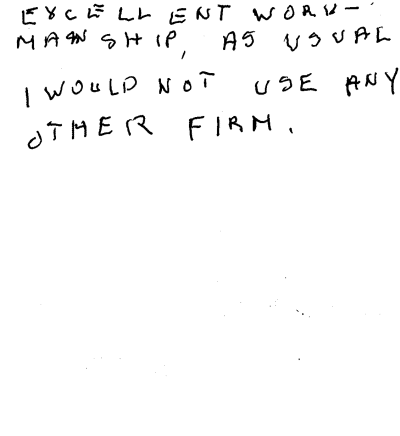 EXCELLENT WORK-
MANSHIP, AS USUAL
I WOULD NOT USE ANY
OTHER FIRM.